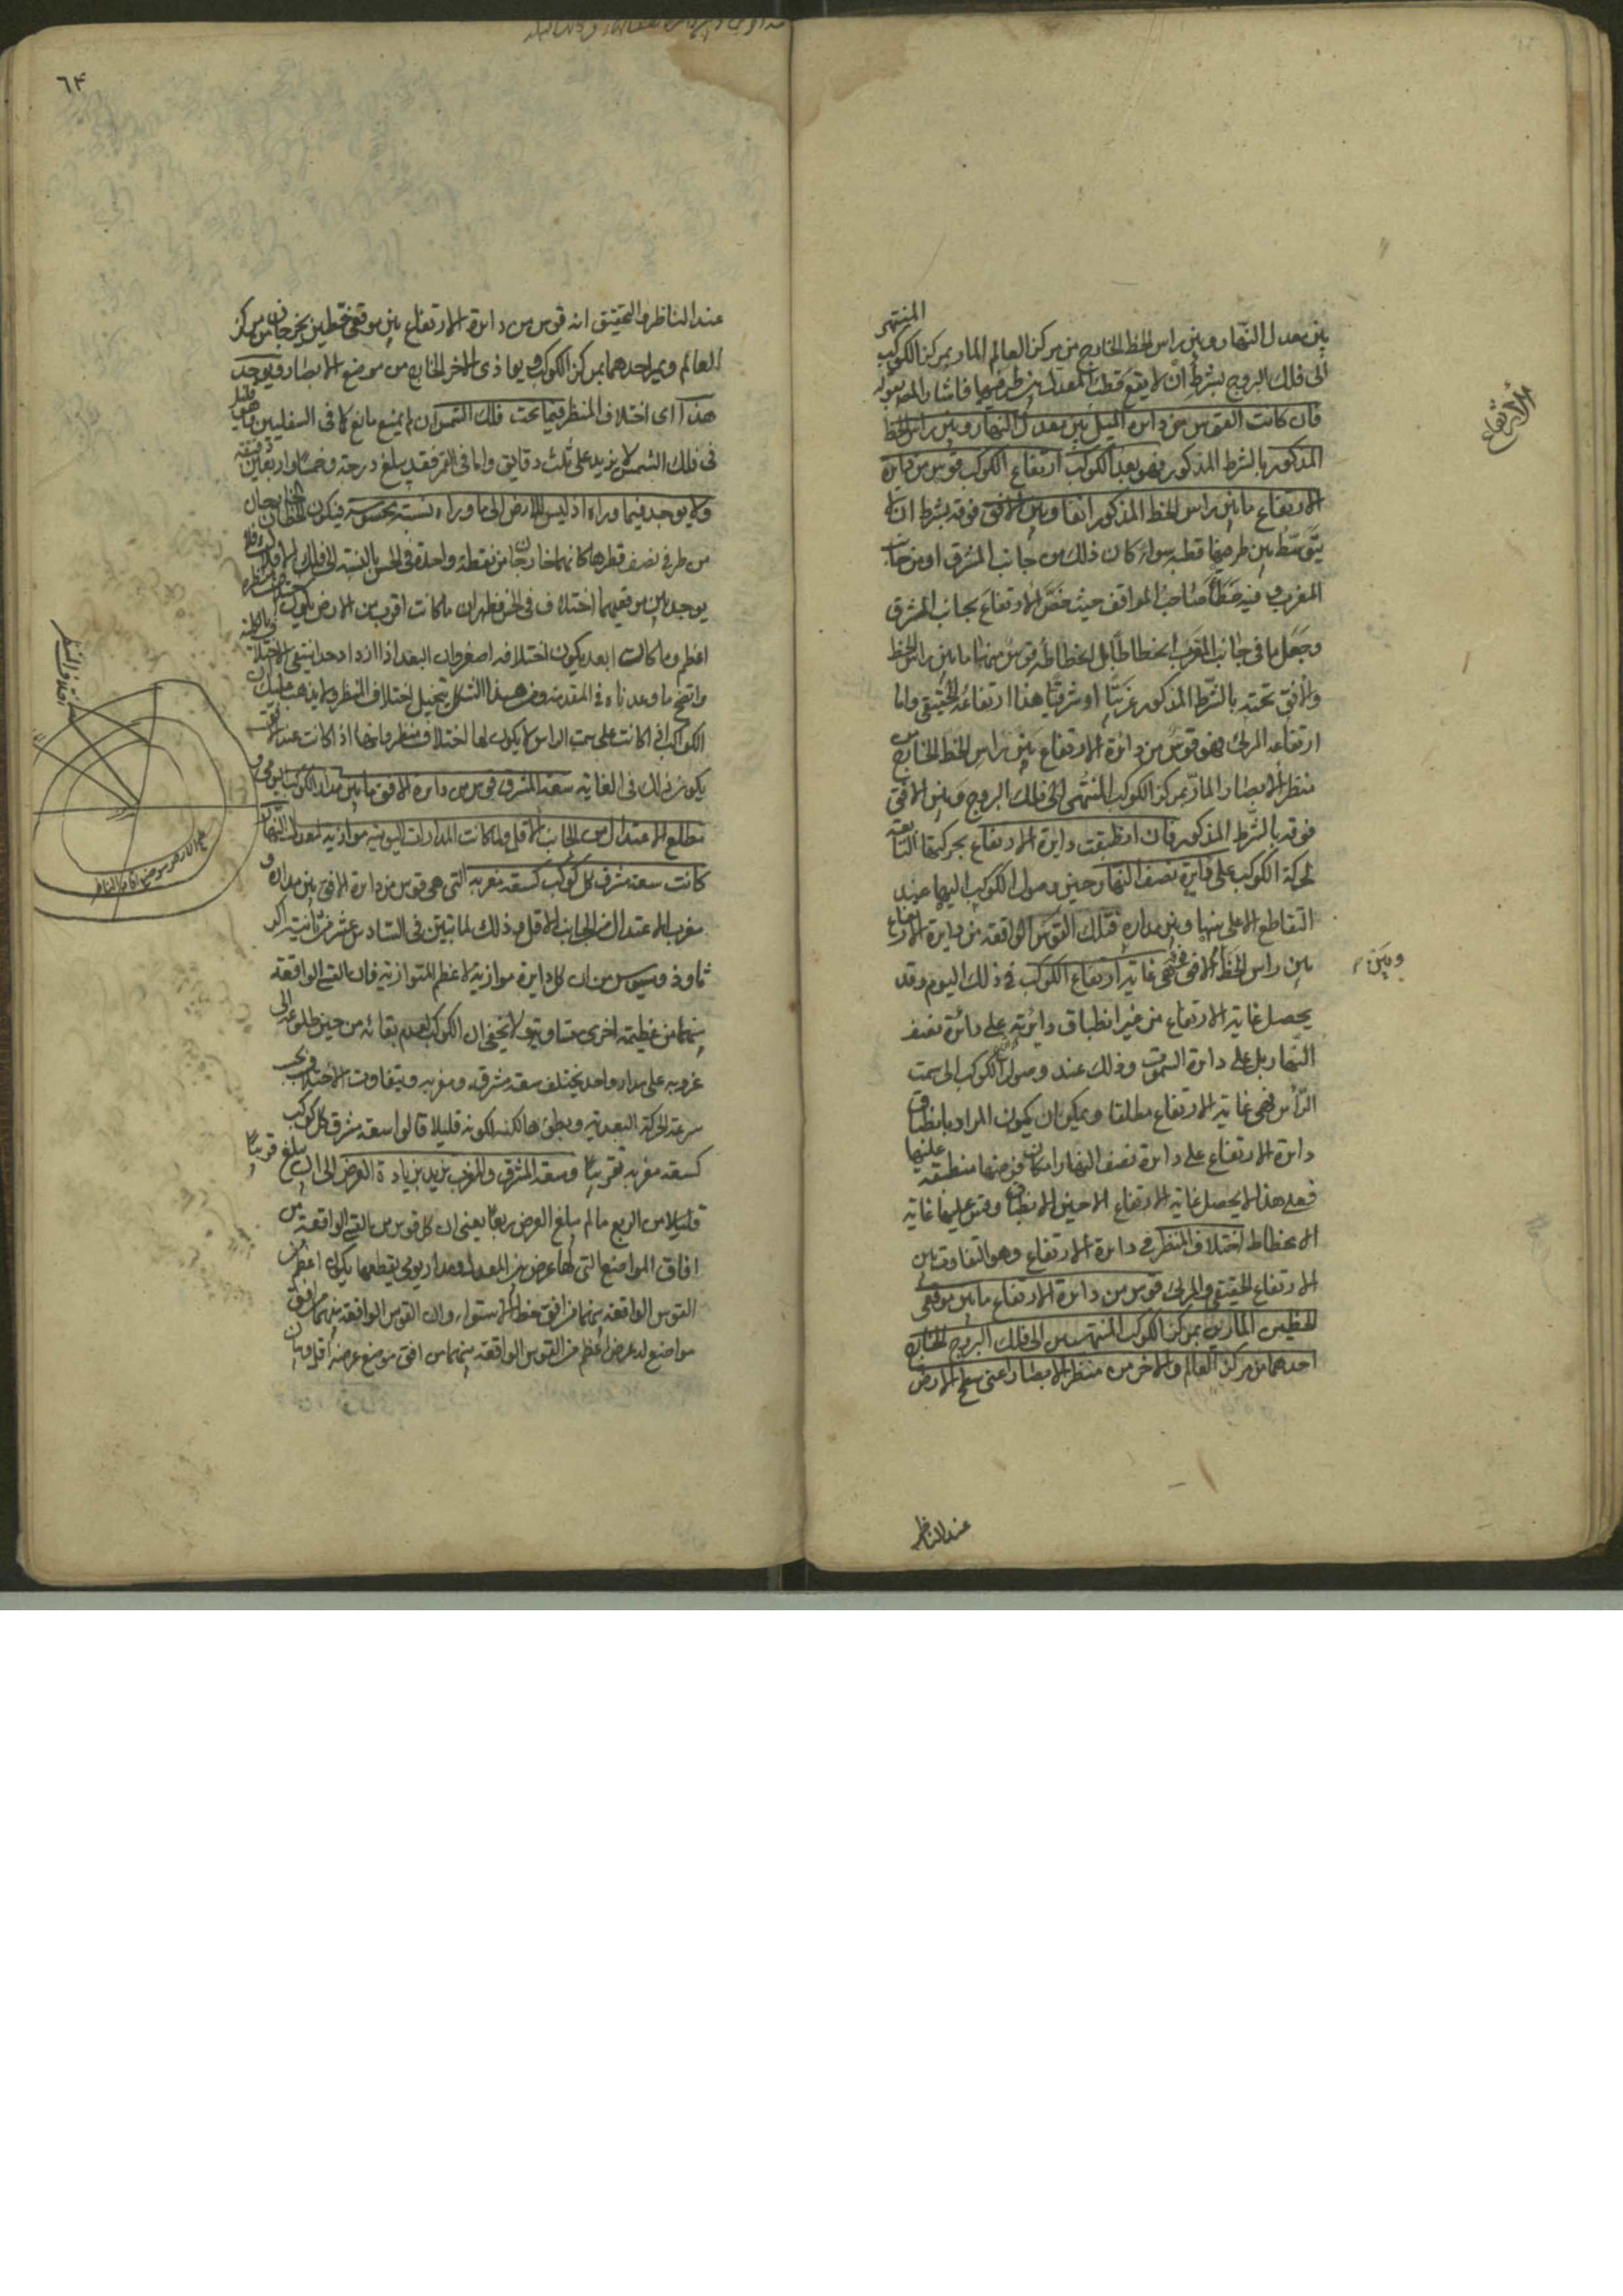 المنتهى
بين معدل النهار وبين راس الخط الخارج من مركز العالم المار بمركز الكوكب
الى فلك البروج بشرط ان لا يقع قطب المعدل بين طرفيها فاشار المص بقوله
فان كانت القوس من دايرة الميل بين معدل النهار وبين راس الخط
المذكور بالشرط المذكور فهو بعد الكوكب ارتفاع الكوكب قوس من دايرة
الارتفاع ما بين راس الخط المذكور انفا وبين الافق فوقه بشرط ان لا
يتوسط بين طرفيها قطبه سواء كان ذلك من جانب المشرق او من جانب
المغرب وفيه خطأ صاحب المواقف حيث خص الارتفاع بجانب المشرق
وجعل ما في جانب المغرب انحطاطا بل انحطاطه قوس منها ما بين راس الخط
والافق تحته بالشرط المذكور غربيا او شرقيا هذا ارتفاعه الحقيقي واما
ارتفاعه المرئي فهو قوس من دائرة الارتفاع بين راس الخط الخارج من
منظر الابصار المار بمركز الكوكب المنتهى الى فلك البروج وبين الافق
فوقه بالشرط المذكور فان انطبقت دايرة الارتفاع بحركتها التابعة
لحركة الكوكب على دايرة نصف النهار حين وصول الكوكب اليها عند
التقاطع الاعلى بينها وبين مداره فتلك القوس الواقعة من دايرة الارتفاع
بين راس الخط الافق فهي غاية ارتفاع الكوكب في ذلك اليوم وقد
يحصل غاية الارتفاع من غير انطباق دائرته على دائرة نصف
النهار بل على دائرة السموت وذلك عند وصول الكوكب الى سمت
الرأس فهي غاية الارتفاع مطلقا ويمكن ان يكون المراد بانطباق
دائرة الارتفاع على دائرة نصف النهار امكان فرضها منطبقة عليها
فعلى هذا لا يحصل غاية الارتفاع الا حين الانطباق وقس عليها غاية
الانحطاط اختلاف المنظر في دائرة الارتفاع وهو التفاوت بين
الارتفاع الحقيقي والمرئي قوس من دائرة الارتفاع ما بين موقعي
الخطين المارين بمركز الكوكب المنتهيين الى فلك البروج الخارج
احدهما من مركز العالم والاخر من منظر الابصار اعني سطح الارض
عند الناظر
الارتفاع
وبين
٦٤
عند الناظر والتحقيق انه قوس من دائرة الارتفاع بين موقعي خطين يخرجان من مركز
العالم ويمر احدهما بمركز الكوكب ويحاذى الاخر الخارج من موضع الابصار ويوجد
هذا اى اختلاف المنظر فيما تحت فلك الشمس ان لم يمنع مانع كما في السفليين وهو قليل
في فلك الشمس لا يزيد على ثلث دقايق واما في القمر فقد يبلغ درجة وخمسا واربعين دقيقة
ولا يوجد فيما وراه اذ ليس للارض الى ما وراه نسبة محسوسة فيكون الخطان الخارجان
من طرفي نصف قطرها كانهما خارجان من نقطة واحدة في الحس بالنسبة الى فلك
يوجد بين موقعيهما اختلاف في الحس فظهر ان ما كانت اقرب من الارض يكون اختلاف منظره
اعظم وما كانت ابعد يكون اختلافه اصغر وان البعد اذا ازداد حدا انتفى الاختلاف بالكلية
واتضح ما وعدناه في المقدمة ومن هذا الشكل يتخيل اختلاف المنظر ولا يذهب عليك ان
الكواكب اذا كانت على سمت الراس لا يكون لها اختلاف منظر وانها اذا كانت عند الافق
يكون ذلك في الغاية سعة المشرق قوس من دائرة الافق ما بين مدار الكوكب اليومي و
مطلع الاعتدال من الجانب الاقل ولما كانت المدارات اليومية موازية لمعدل النهار
كانت سعة مشرق كل كوكب كسعة مغربه التي هي قوس من دائرة الافق بين مداره و
مغرب الاعتدال من الجانب الاقل وذلك لما تبين في السادس عشر من ثانية اكر
ثاوذوسيوس من ان كل دايرة موازية لاعظم المتوازية فان القسى الواقعة
بينهما من عظيمة اخرى متساوية ولا يخفى ان الكوكب لعدم بقائه من حين طلوعه الى
غروبه على مدار واحد يختلف سعة مشرقه ومغربه ويتفاوت الاختلاف بحسب
سرعة الحركة البعدية وبطؤها لكنه لكونه قليلا قالوا سعة مشرق كل كوكب
كسعة مغربه تقريبا وسعة المشرق والمغرب يزيد بزيادة العرض الى ان يبلغ قريبا
قليلا من الربع ما لم يبلغ العرض ربعا يعنى ان كل قوس من القسي الواقعة من
افاق المواضع التي لها عرض بين المعدل ومدار يومى يقطعها يكون اعظم من
القوس الواقعة بينهما من افق خط الاستواء وان القوس الواقعة بينهما من افق
مواضع له عرض اعظم من القوس الواقعة بينهما من افق موضع عرضه اقل وبيان
اختلاف المنظر